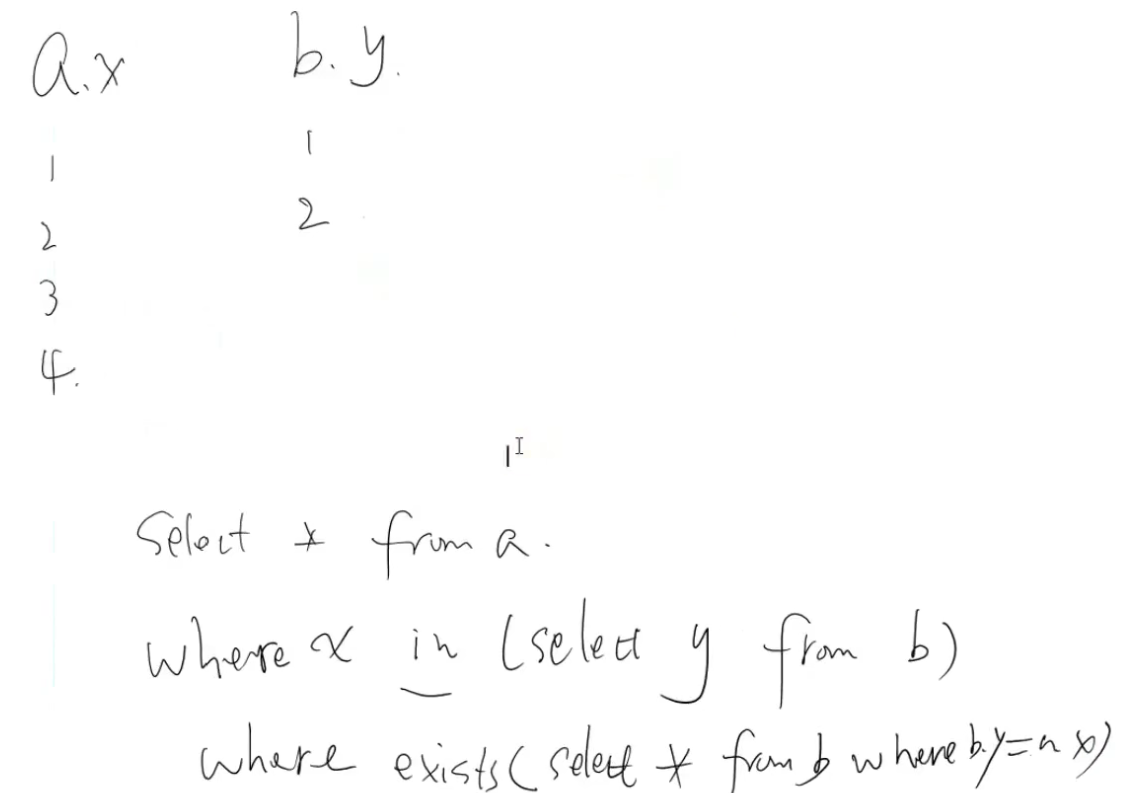 a.x b.y.
1 1
2 2
3
4.
Select * from a.
where x in (select y from b)
where exists( select * from b where b.y=a x)